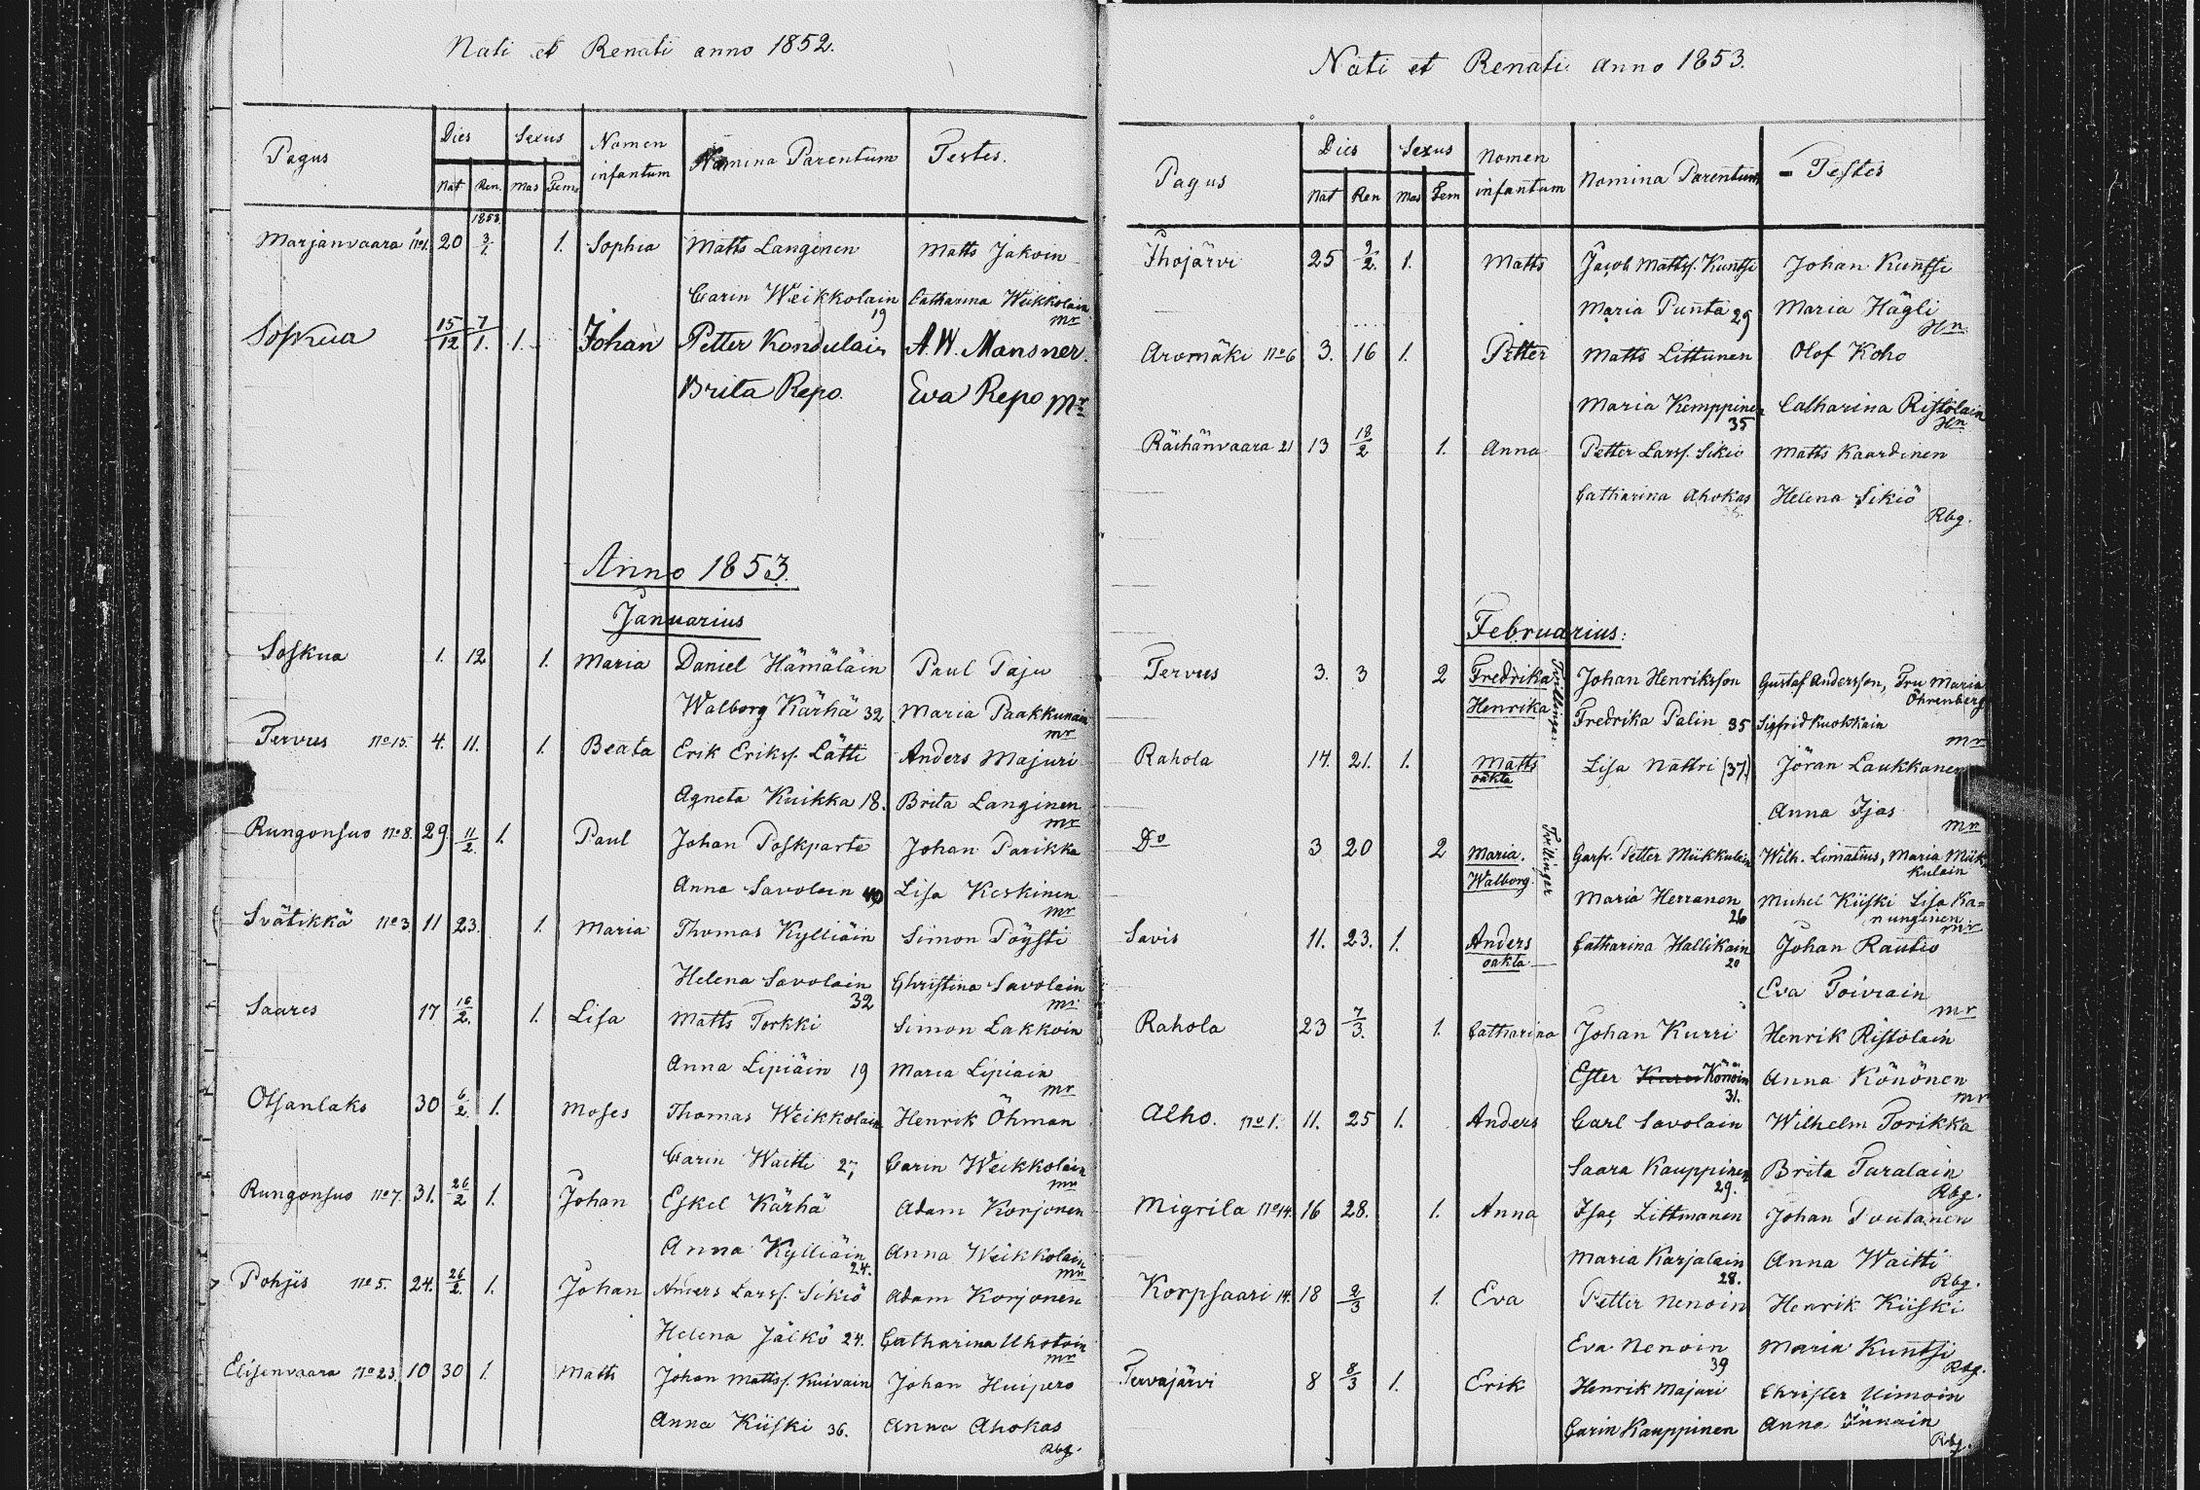 Nati et Renati anno 1852.
Pagus Dies Sexus Nomen infantum Nomina Parentum Testes.
Nat Ren. Mas Fem.
1853
Marjanvaara No1. 20 3/1. 1. Sophia Matts Langinen Matts Jakoin
Carin Weikkolain 19 Catharina Weikkolain
mr
Soskua 15/12 7/1. 1. Johan Petter Kondulain A. W. Mansner.
Brita Repo. Eva Repo mr
Anno 1853.
Januarius
Soskua 1. 12 1. Maria Daniel Hämäläin Paul Paju
Walborg Kärhä 32 Maria Paakkunain
mr
Tervus No 15. 4. 11. 1. Beata Erik Eriks. Lätti Anders Majuri
Agneta Kuikka 18. Brita Langinen
mr
Rungonsuo No 8. 29 11/2. 1. Paul Johan Poskparta Johan Parikka
Anna Savolain 40 Lisa Keskinen
mr
Svätikkä No 3 11 23. 1. Maria Thomas Kylliäin Simon Pöysti
Helena Savolain 32 Christina Savolain
mr
Saares 17 16/2. 1. Lisa Matts Torkki Simon Lakkoin
Anna Lipiäin 19 Maria Lipiäin
mr
Otsanlaks 30 6/2. 1. Moses Thomas Weikkolain Henrik Öhman
Carin Waitti 27 Carin Weikkolain
mr
Rungonsuo No 7. 31. 26/2 1. Johan Eskel Kärhä Adam Korjonen
Anna Kylliäin 24. Anna Weikkolain
mr
Pohjis No 5. 24. 26/2. 1. Johan Anders Larss. Sikiö Adam Korjonen
Helena Jälkö 24. Catharina Uhotoin
mr
Elisenvaara No 23. 10 30 1. Matts Johan Mattss. Kuivain Johan Huipero
Anna Kiiski 36. Anna Ahokas
Rbg.
Nati et Renati anno 1853.
Pagus Dies Sexus Nomen infantum Nomina Parentum Testes
Nat Ren Mas Fem
Ihojärvi 25 9/2. 1. Matts Jacob Mattss. Kuntsi Johan Kuntsi
Maria Punta 29 Maria Hägli
Hn.
Aromäki No 6 3. 16 1. Petter Matts Littunen Olof Koho
Maria Kemppinen 35 Catharina Ristolain
Hn
Räihänvaara 21 13 18/2 1. Anna Petter Larss. Sikiö Matts Kaardinen
Catharina Ahokas Helena Sikiö
Rbg.
Februarius:
Tervus 3. 3 2 Fredrika Johan Henriksson Gustaf Andersson, Fru Maria Öhrenberg
Henrika Tvillingar. Fredrika Palin 35 Sigfrid Kuokkain
mr
Rahola 14. 21. 1. Matts oäkta Lisa Nättri (37.) Jöran Laukkanen
Anna Ijas
mr
Do 3 20 2 Maria. Garfv. Petter Miikkulain Wilh. Limatius, Maria Miikkulain
Walborg. Tvillingar Maria Herranen 26 Michel Kiiski Lisa Ka=nunginen
mr
Savis 11. 23. 1. Anders oäkta Catharina Hallikain 20 Johan Rautio
Eva Toivain
mr
Rahola 23 7/3. 1. Catharina Johan Kurri Henrik Ristolain
Ester Könöin 31. Anna Könönen
mr
Alho. No 1. 11. 25 1. Anders Carl Savolain Wilhelm Torikka
Saara Kauppinen 29. Brita Taralain
Rbg.
Migrila No 14. 16 28. 1. Anna Isac Littmanen Johan Poutanen
Maria Karjalain 28. Anna Waitti
Rbg.
Korpsaari 14. 18 2/3 1. Eva Petter Nenoin Henrik Kiiski
Eva Nenoin 39 Maria Kuntsi
Rbg.
Tervajärvi 8 8/3 1. Erik Henrik Majuri Christer Uimoin
Carin Kauppinen Anna
Rbg.